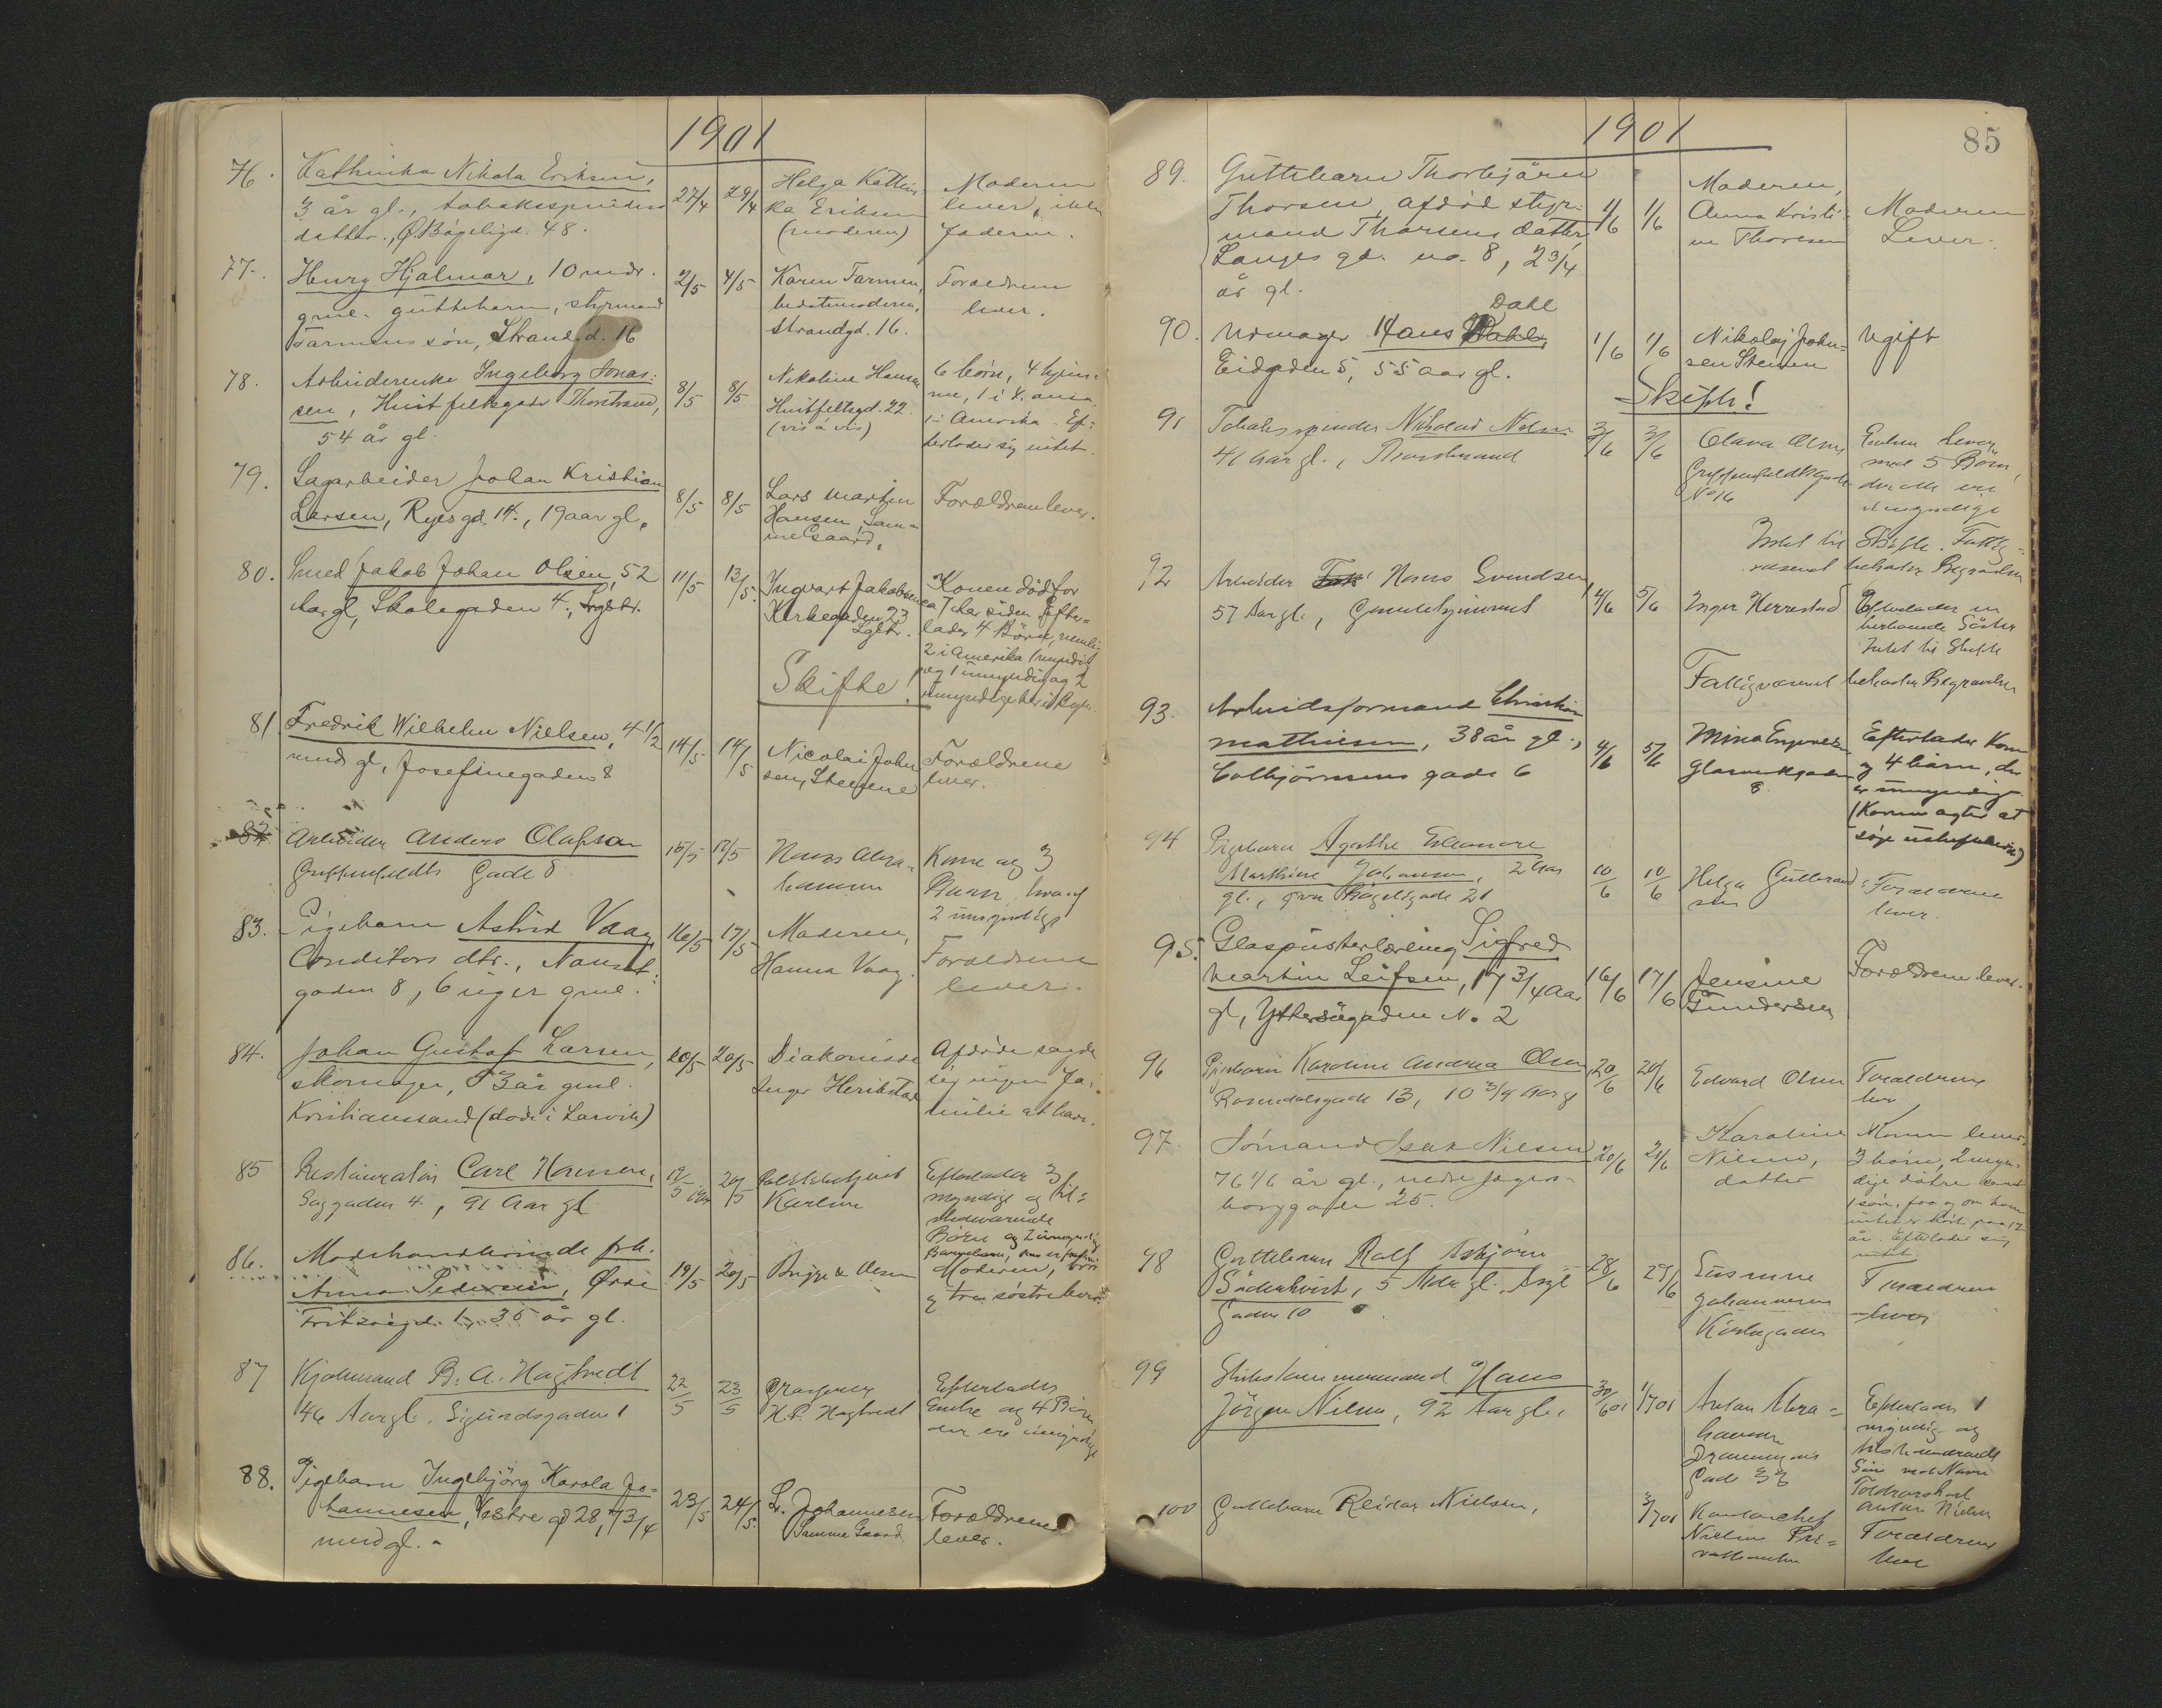 1901
76. Kathinka Nikola Eriksen,
3 år gl., tobakspinders
datter, Ø. Bögeligd. 48.
27/4 29/4
Helga Kathin-
ka Eriksen
(moderen)
Moderen
lever, ikke
faderen.
77. Henry Hjalmar, 10 mdr.
gml. guttebarn, styrmand
Tarmens søn, Strandgd. 16
2/5 4/5
Karen Tarmen,
bedstemoderen,
Strandgd. 16.
Forældrene
lever.
78. Arbeiderenke Ingeborg Jonas-
sen, Huitfeldtsgade Thorstrand,
54 år gl.
8/5 8/5
Nikoline Hansen
Huitfeldtsgd. 22
(vis à vis)
6 børn, 4 hjem-
me, 1 i
i Amerika. Ef-
terlader sig intet.
79. Sagarbeider Johan Kristian
Larsen, Ryesgd. 14., 19 aar gl.
8/5 8/5
Lars Martin
Hansen, Sam-
me Gaard.
Forældrene lever.
80. Smed Jakob Johan Olsen, 52
Aar gl. Skolegaden 4., Lgstr.
11/5 13/5
Ingvart Jakobsen
Kirkegaden 23
Lgstr.
Konen död for
ca 7 Aar siden. Efter-
lader 4 Börn, nemlig
2 i Amerika 1 myndig
og 1 umyndig og 2
umyndige her i Byen.
Skifte!
81 Fredrik Wilhelm Nielsen, 4 1/2
mnd gl, Josefinegaden 8
14/5 14/5
Nicolai John
sen, Steenene
Forældrene
lever.
82 Arbeider Anders Olafsson
Griffenfeldts Gade 8
15/5 17/5
Hans Abra-
hamsen
Kone og 3
Børn, hvoraf
2 umyndige
83. Pigebarn Astrid Vaag
Conditors dtr., Nanset-
gaden 8, 6 uger gml.
16/5 17/5
Moderen,
Hanna Vaag.
Forældrene
lever.
84. Johan Gustaf Larsen,
skomager, 53 år gml.
Kristianssand (döde i Larvik)
20/5 20/5
Diakonisse
Inger Herikstad
Afdøde sagde
sig ingen fa-
milie at have.
85 Restauratør Carl Hansen,
Saggaden 4., 91 Aar gl
19/5 1901 20/5
Karlsen
Efterlader 3
myndige og til-
stedeværende
Börn og 2 umyndige
Barnebarn,
86. Modehandlerinde frk.
Anna Pedersen, Øvre
Fritzöegd. 1, 35 år gl.
19/5 20/5
Olsen
Moderen, bror
og tre søstre lever.
87 Kjøbmand B. A. Hagtvedt
46 Aar gl. Sigurdsgaden 1
22/5 23/5
H. P. Hagtvedt
Efterlader
Enke og 4 Börn
der ere umyndige
88. Pigebarn Ingebjörg Karola Jo-
hannesen, Vestre gd 28, 7 3/4
mnd gl. -
23/5 24/5
L. Johannesen
Samme Gaard
Forældrene
lever.
1901
85
89. Guttebarn Thorbjörn
Thorsen, afdød styr-
mand Thorsens datter
Langes gd. no. 8, 2 3/4
år gl.
1/6 1/6
Moderen,
Anna Kristi-
ne Thoresen
Moderen
Lever.
90. Urmager Hans Dahl
Dahl
Eidgaden 5, 55 aar gl.
1/6 1/6
Nikolaj John-
sen Stenen
Ugift
Skifte!
91 Tobakspinder Nikolai Nilsen
41 Aar gl., Thorstrand
3/6 3/6
Olava Olsen
Griffenfeldts gade
No 16
Enken Lever
med 5 Börn,
der alle ere
umyndige
Intet til Skifte. Fattig-
væsenet bekoster Begravelsen
92 Arbeider Hans Svendsen,
57 Aar gl., Gamlehjemmet
4/6 5/6
Inger Herrestad
Efterlader en
herboende Søster
Intet til Skifte
Fattigvæsenet bekoster Begravelsen
93. Arbeidsformand Christian
Mathiesen, 38 år gl.,
Colbjörnsens gade 6
4/6 5/6
Mina Engvoldsen
Glasverkgaden
8.
Efterlader Kone
og 4 børn, der
er umyndige
(Konen agter at
søge uskiftebevill.)
94 Pigebarn Agathe Eleonore
Marthine Johansen, 2 Aar
gl., øvre Bögeligade 21
10/6 10/6
Helga Gulbrand-
sen
Forældrene
lever.
95. Glaspusterlærling Sigfred
Martin Leifsen, 17 3/4 Aar
gl, Yttersögaden No 2
16/6 17/6
Jensine
Gundersen
Forældrene lever.
96 Pigebarn Karoline Andrea Olsen,
Rosendalsgade 13, 10 3/4 Aar gl
20/6 20/6
Edvard Olsen
Forældrene
lever
97. Sømand Isak Nielsen
76 1/6 år gl., nedre Jegers-
borggade 25.
20/6 21/6
Karoline
Nilsen,
datter
Konen lever.
3 børn, 2 myn-
dige døtre samt
1 søn,
intet er hørt paa 12
år. Efterlader sig
intet.
98 Guttebarn Ralf Asbjörn
Söderkvist, 5 Mdr gl.,
Gaden 10
28/6 29/6
Susanne
Johannesen
Kirkegaden
Forældrene
lever
99 Skibstømmermand Hans
Jörgen Nilsen, 92 Aar gl.
30/6 01 1/7 01
Anton Abra-
hamsen
Drammens
Gade 33
Efterlader 1
myndig og
tilstedeværende
Søn ved Navn
Toldvarskarl
Anton Nielsen
100 Guttebarn Reidar Nielsen,
3/7 01
Kontorchef
Nielsen
Forældrene
lever